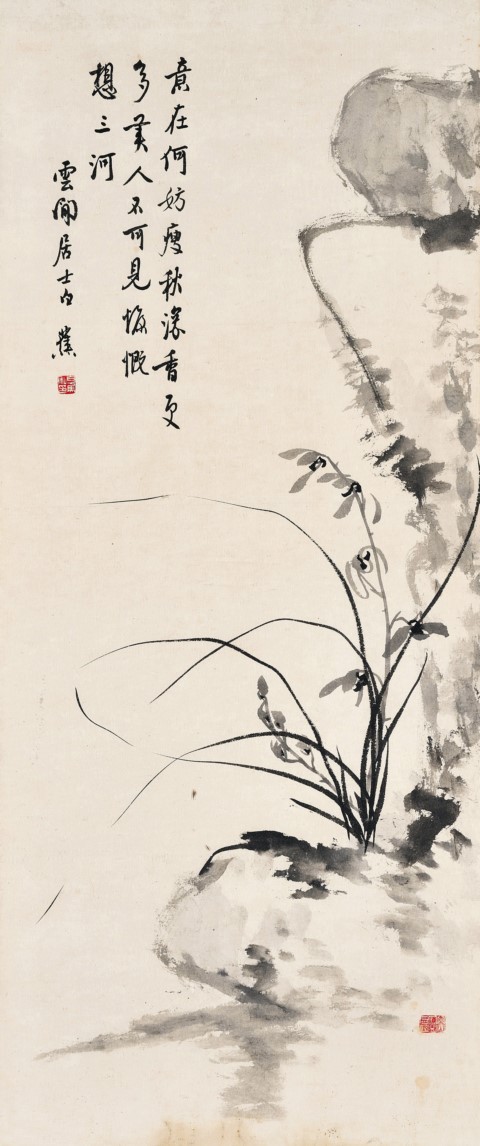 意在何妨瘦秋深香更
多美人不可見慷慨
想三河
雲間居士白蕉